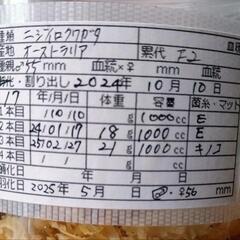 種類 ニジイロクワガタ 血統
産地 オーストラリア 累代 F2
種親♂55mm 血統×♀ mm
孵化・割り出し 2024年 10月 10日
17 年/月/日 体重 容器 菌糸・マット
1本目 1 10 1 10 g 1000cc E
2本目 24 10 1 17 18g 1000cc E
3本目 25 02 1 27 21g 1000cc キノコ
4本目 / / g cc
化日 年 月 日
羽化日 2025年 5月 日 ♂・♀56mm